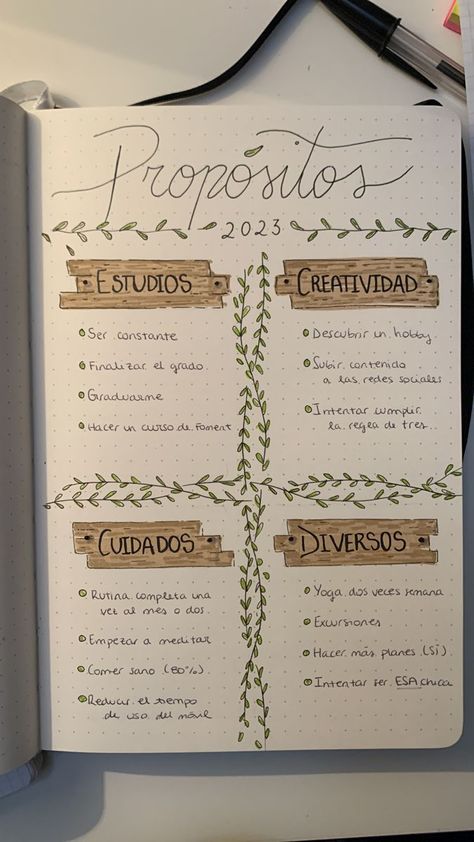 Propósitos
2023
ESTUDIOS
Ser constante
Finalizar el grado.
Graduarme
Hacer un curso de foment
CREATIVIDAD
Descubrir un hobby.
Subir contenido
a las redes sociales.
Intentar cumplir
la regla de tres..
CUIDADOS
Rutina completa una
vez al mes o dos.
Empezar a meditar
Comer sano (80%).
Reducir el tiempo
de uso del móvil
DIVERSOS
Yoga dos veces semana
Excursiones
Hacer más planes (SÍ).
Intentar ser ESA chica